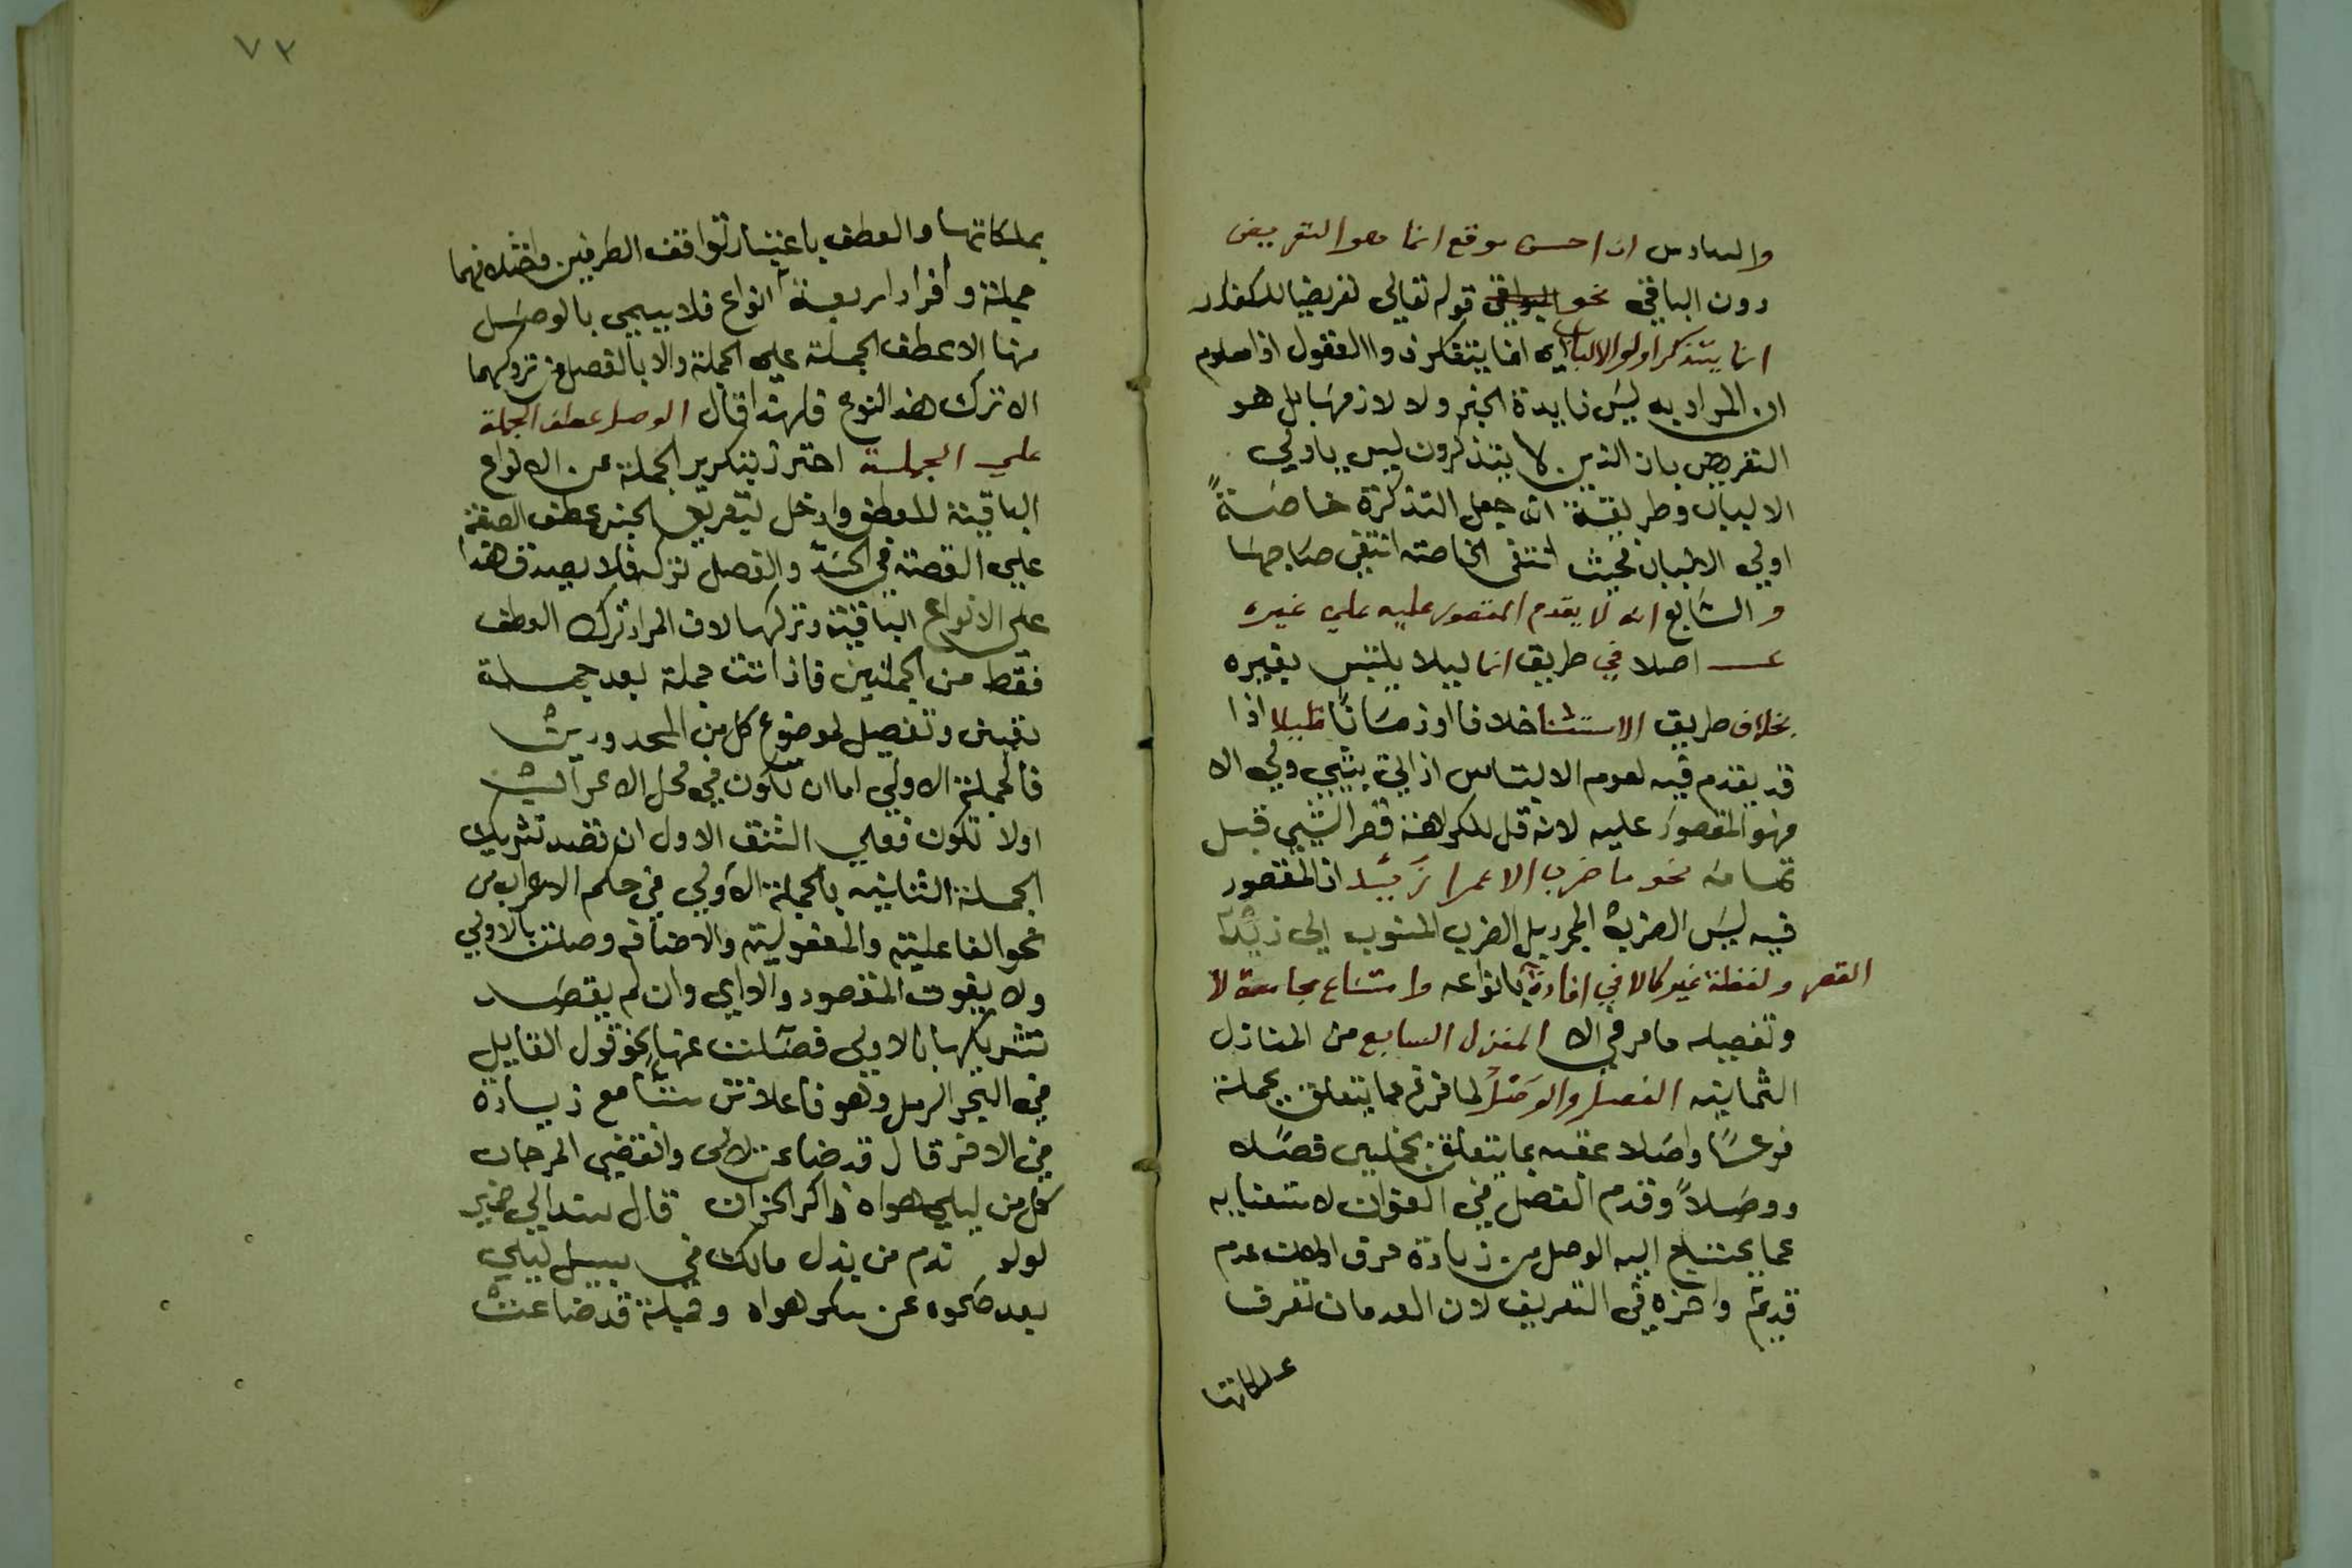 والسادس ان احسن موقع انما هو التعريض
دون الباقي نحو البواقي قوله تعالى تعريضا للكفار
انما يتذكر اولوا الالباب اى انما يتفكر ذووا العقول اذ معلوم
ان المراد به ليس فايدة الخبر ولا لازمها بل هو
التعريض بان الذين لا يتذكرون ليس باولي
الالباب وطريقته ان جعل التذكرة خاصة
اولي الالباب فحيث انتفى الخاصة انتفى صاحبها
والسابع انه لا يقدم المقصور عليه علي غيره
اصلا في طريق انما ليلا يلتبس بغيره
بخلاف طريق الاستثنا خلافا اوزمانا قليلا اذا
قد يقدم فيه لعدم الالتباس اذ اي شي ولي الا
فهو المقصور عليه لانه قل للكراهة قصر الشي قبل
تمامه نحو ما ضرب الا عمرا زيد اذ المقصور
فيه ليس الضرب المجرد بل الضرب المنسوب الي زيد
القصر ولفظة غير كالا في افادة انواعه وامتناع مجامعة لا
وتفصيله ما مر في الا المنزل السابع من المنازل
الثمانية الفصل والوصل لما فرغ عما يتعلق بجملة
فرعا واصلا عقبه بما يتعلق بجملتين فصلا
ووصلا وقدم الفصل في العنوان لاستغنايه
عما يحتاج اليه الوصل من زيادة حرف اذ العدم
قديم واخره في التعريف لان العدمات تعرف
بملكاتها
٧٢
بملكاتها والعطف باعتبار توافق الطرفين واختلافهما
جملة وافرادا اربعة انواع فلا يسمي بالوصل
منها الا عطف الجملة على الجملة ولا بالفصل من تروكهما
الا ترك هذا النوع فلهذا قال الوصل عطف الجملة
علي الجملة احترز بتنكير الجملة عن الانواع
الباقية للعطف وادخل بتعريف الجنس عطف القصة
علي القصة في الحد والفصل تركه فلا يصدق هذا
على الانواع الباقية وتركها لان المراد ترك العطف
فقط من الجملتين فاذا اتت جملة بعد جملة
تعيين وتفصيل لموضوع كل من المحدودين
فالجملة الاولي اما ان تكون في محل الاعراب
اولا تكون فعلي الشق الاول ان قصد تشريك
الجملة الثانيه بالجملة الاولي في حكم الاعراب من
نحو الفاعلية والمفعولية والاضافه وصلت بالاولي
ولا يفوت المقصود والداعي وان لم يقصد
تشريكها بالاولى فصلت عنها نحو قول القايل
في البحر الرمل وهو فاعلاتن ستا مع زيادة
في الاخر قال قد ضاعت لالى وانقضي المرجان
كل من ليلي هواه ذاكر الخزان قال سندا لي خير
لولو ندم من بذل مالك في سبيل ليلي
بعد صحوه عن سكر هواه وجملة قد ضاعت